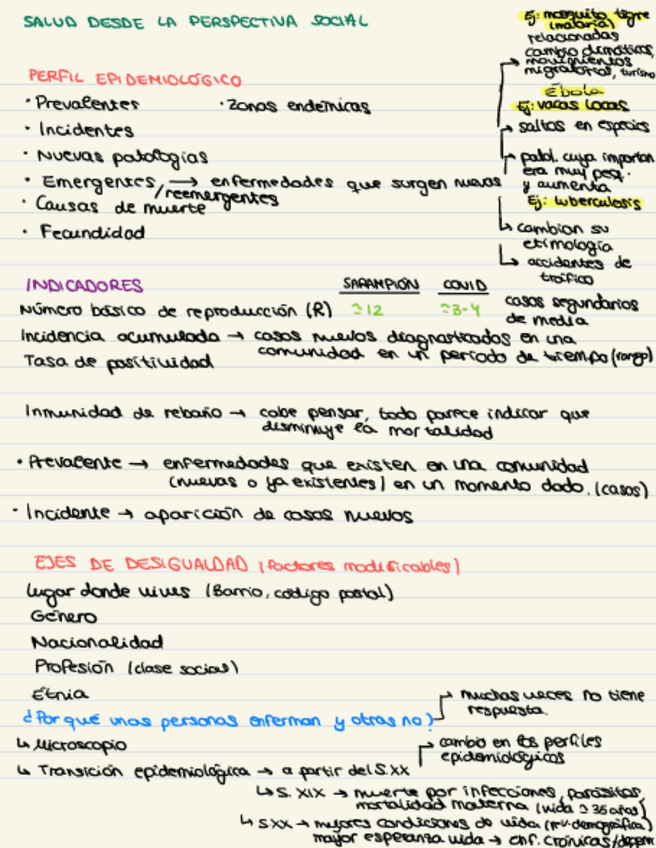 SALUD DESDE LA PERSPECTIVA SOCIAL
Ej: mosquito tigre
(malaria)
relacionadas
cambio climáticos,
movimientos
migratorios, turismo
Ébola
Ej: vacas locas
saltos en especies
patol. cuya importan
era muy peq.
y aumenta
Ej: tuberculosis
cambian su
etimología
accidentes de
tráfico
PERFIL EPIDEMIOLÓGICO
· Prevalentes · Zonas endémicas
· Incidentes
· Nuevas patologías
· Emergentes → enfermedades que surgen nuevas
/reemergentes
· Causas de muerte
· Fecundidad
INDICADORES SARAMPIÓN COVID
Número básico de reproducción (R) ≃12 ≃3-4 casos segundarios
de media
Incidencia acumulada → casos nuevos diagnosticados en una
comunidad en un periodo de tiempo (rango)
Tasa de positividad
Inmunidad de rebaño → cabe pensar, todo parece indicar que
disminuye la mortalidad
· Prevalente → enfermedades que existen en una comunidad
(nuevas o ya existentes) en un momento dado. (casos)
· Incidente → aparición de casos nuevos
EJES DE DESIGUALDAD (factores modificables)
Lugar donde vives (Barrio, código postal)
Género
Nacionalidad
Profesión (clase social)
Etnia
¿Por qué unas personas enferman y otras no? → muchas veces no tiene
respuesta.
↳ Microscopio
↳ Transición epidemiológica → a partir del S.XX → cambio en los perfiles
epidemiológicos
↳ S. XIX → muerte por infecciones, parásitos,
mortalidad materna (vida ≃ 35 años)
↳ S.XX → mejores condiciones de vida (rev. demográfica)
mayor esperanza vida → enf. crónicas/degen